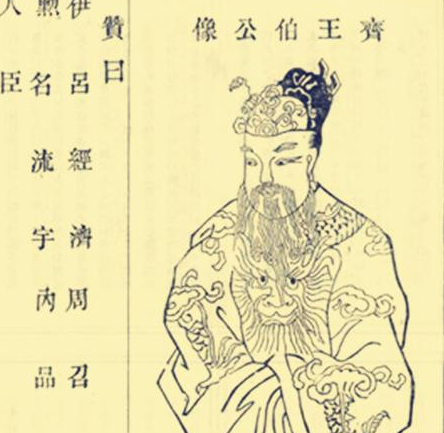 齊王伯公像
贊曰
伊呂經濟周召
勳名流宇內品
人臣